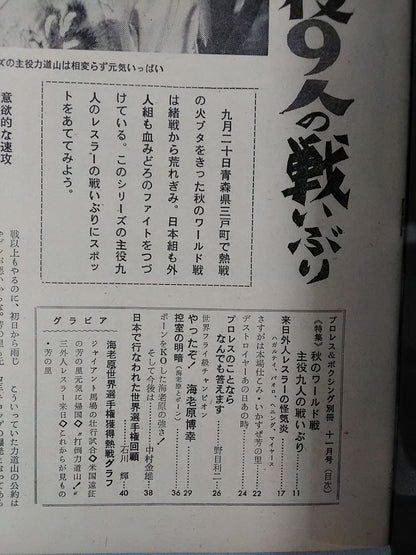 役9人の戦いぶり
ズの主役力道山は相変らず元気いっぱい
九月二十日青森県三戸町で熱戦
の火ブタをきった秋のワールド戦
は緒戦から荒れぎみ。日本組も外
人組も血みどろのファイトをつづ
けている。このシリーズの主役九
人のレスラーの戦いぶりにスポッ
トをあててみよう。
意欲的な速攻
プロレス&ボクシング別冊 十一月号(目次)
《特集》秋のワールド戦
主役九人の戦いぶり…11
来日外人レスラーの怪気炎…17
さすがは本場仕こみ・いかすぜ芳の里…22
デストロイヤーあの日あの時…24
プロレスのことなら
なんでも答えます 野目利二…26
世界フライ級チャンピオン
やったぞ! 海老原博幸…29
控室の明暗(海老原とポーン)…36
ポーンをKOした海老原の強さ!
そして今後は… 中村金雄…38
日本で行なわれた世界選手権回顧
石川 輝…40
グラビア
海老原世界選手権獲得熱戦グラフ
ジャイアント馬場の壮行試合◇米国遠征
の芳の里元気に帰国◇"打倒力道山!"
三外人レスラー来日◇これからが見もの
・芳の里
戦以上もやるのに、初日から雨じ
こういっていた力道山の公約は